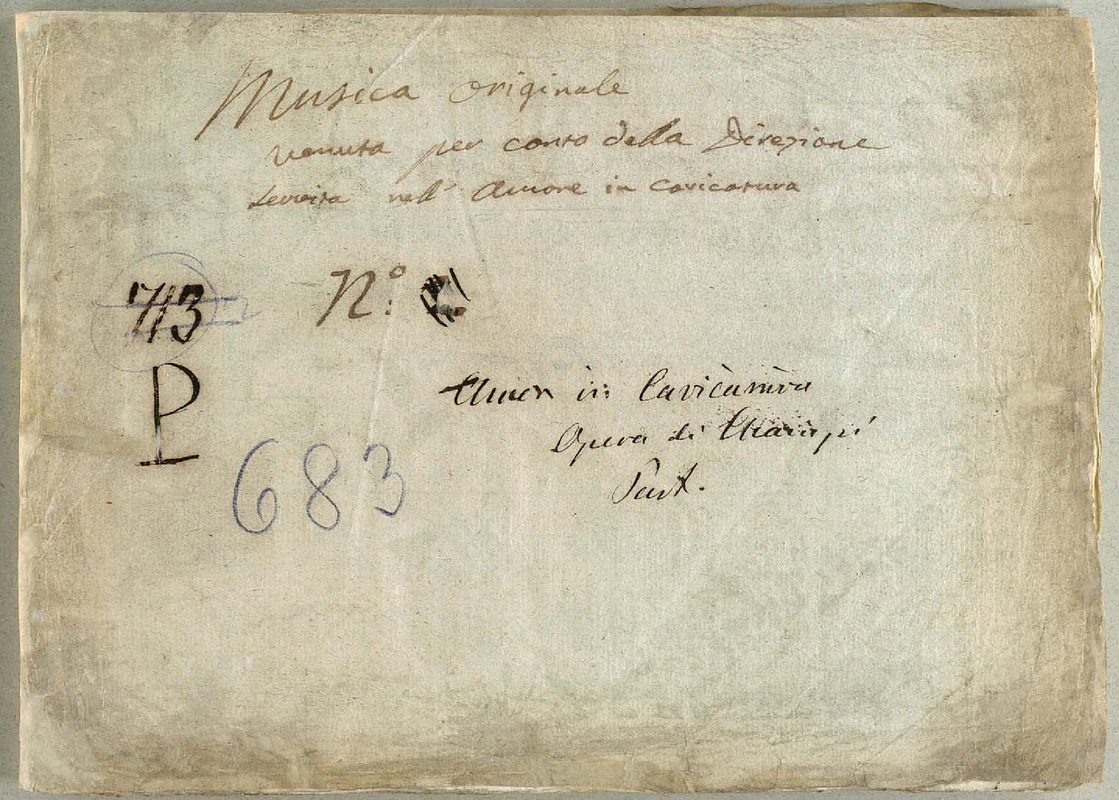 Musica originale
venuta per conto della Direzione
servita nell' Amore in caricatura
713
N.º
P
Amor in Caricatura
Opera di Ciampi
Part.
683